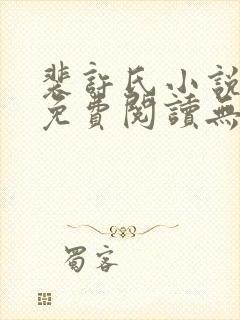 裴許氏小說
免費閱讀無
蜀客